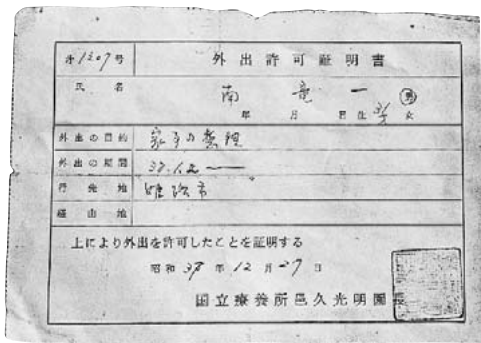 第1307号 外出許可証明書
氏名 南 竜一 男
年 月 日生 31才 女
外出の目的 家事の整理
外出の期間 37.12.
行先地 姫路市
経由地
上により外出を許可したことを証明する
昭和37年12月27日
国立療養所邑久光明園長